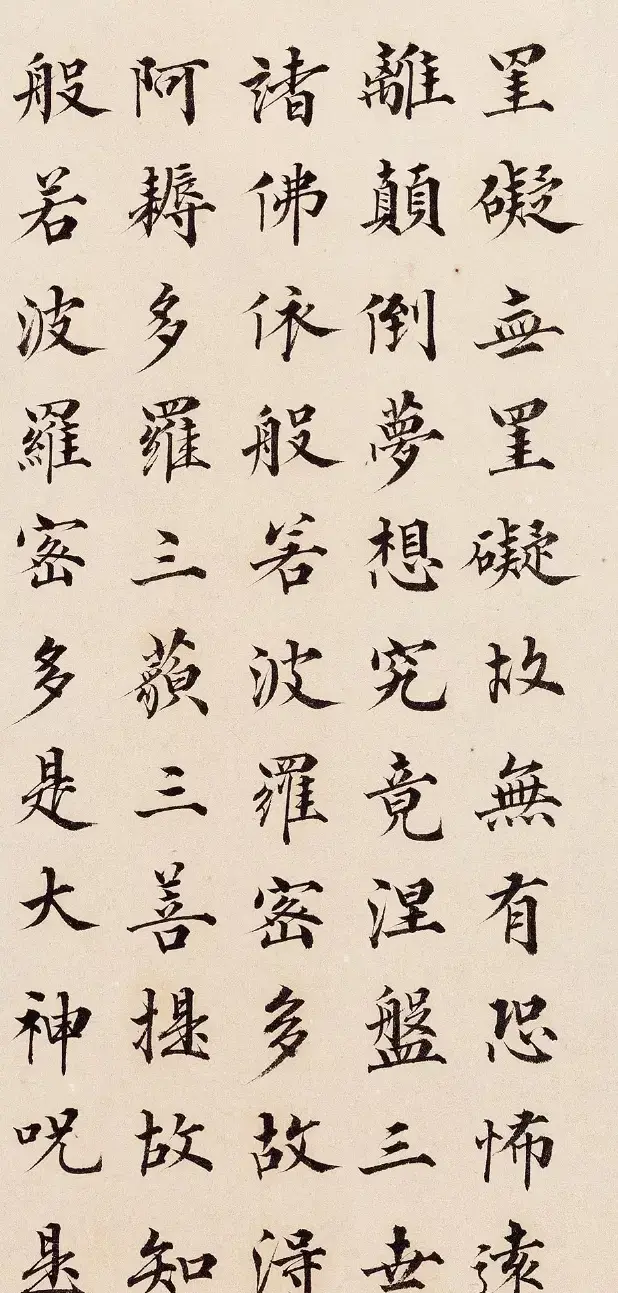 罣礙無罣礙故無有恐怖遠
離顛倒夢想究竟涅盤三世
諸佛依般若波羅密多故得
阿耨多羅三藐三善提故知
般若波羅密多是大神咒是